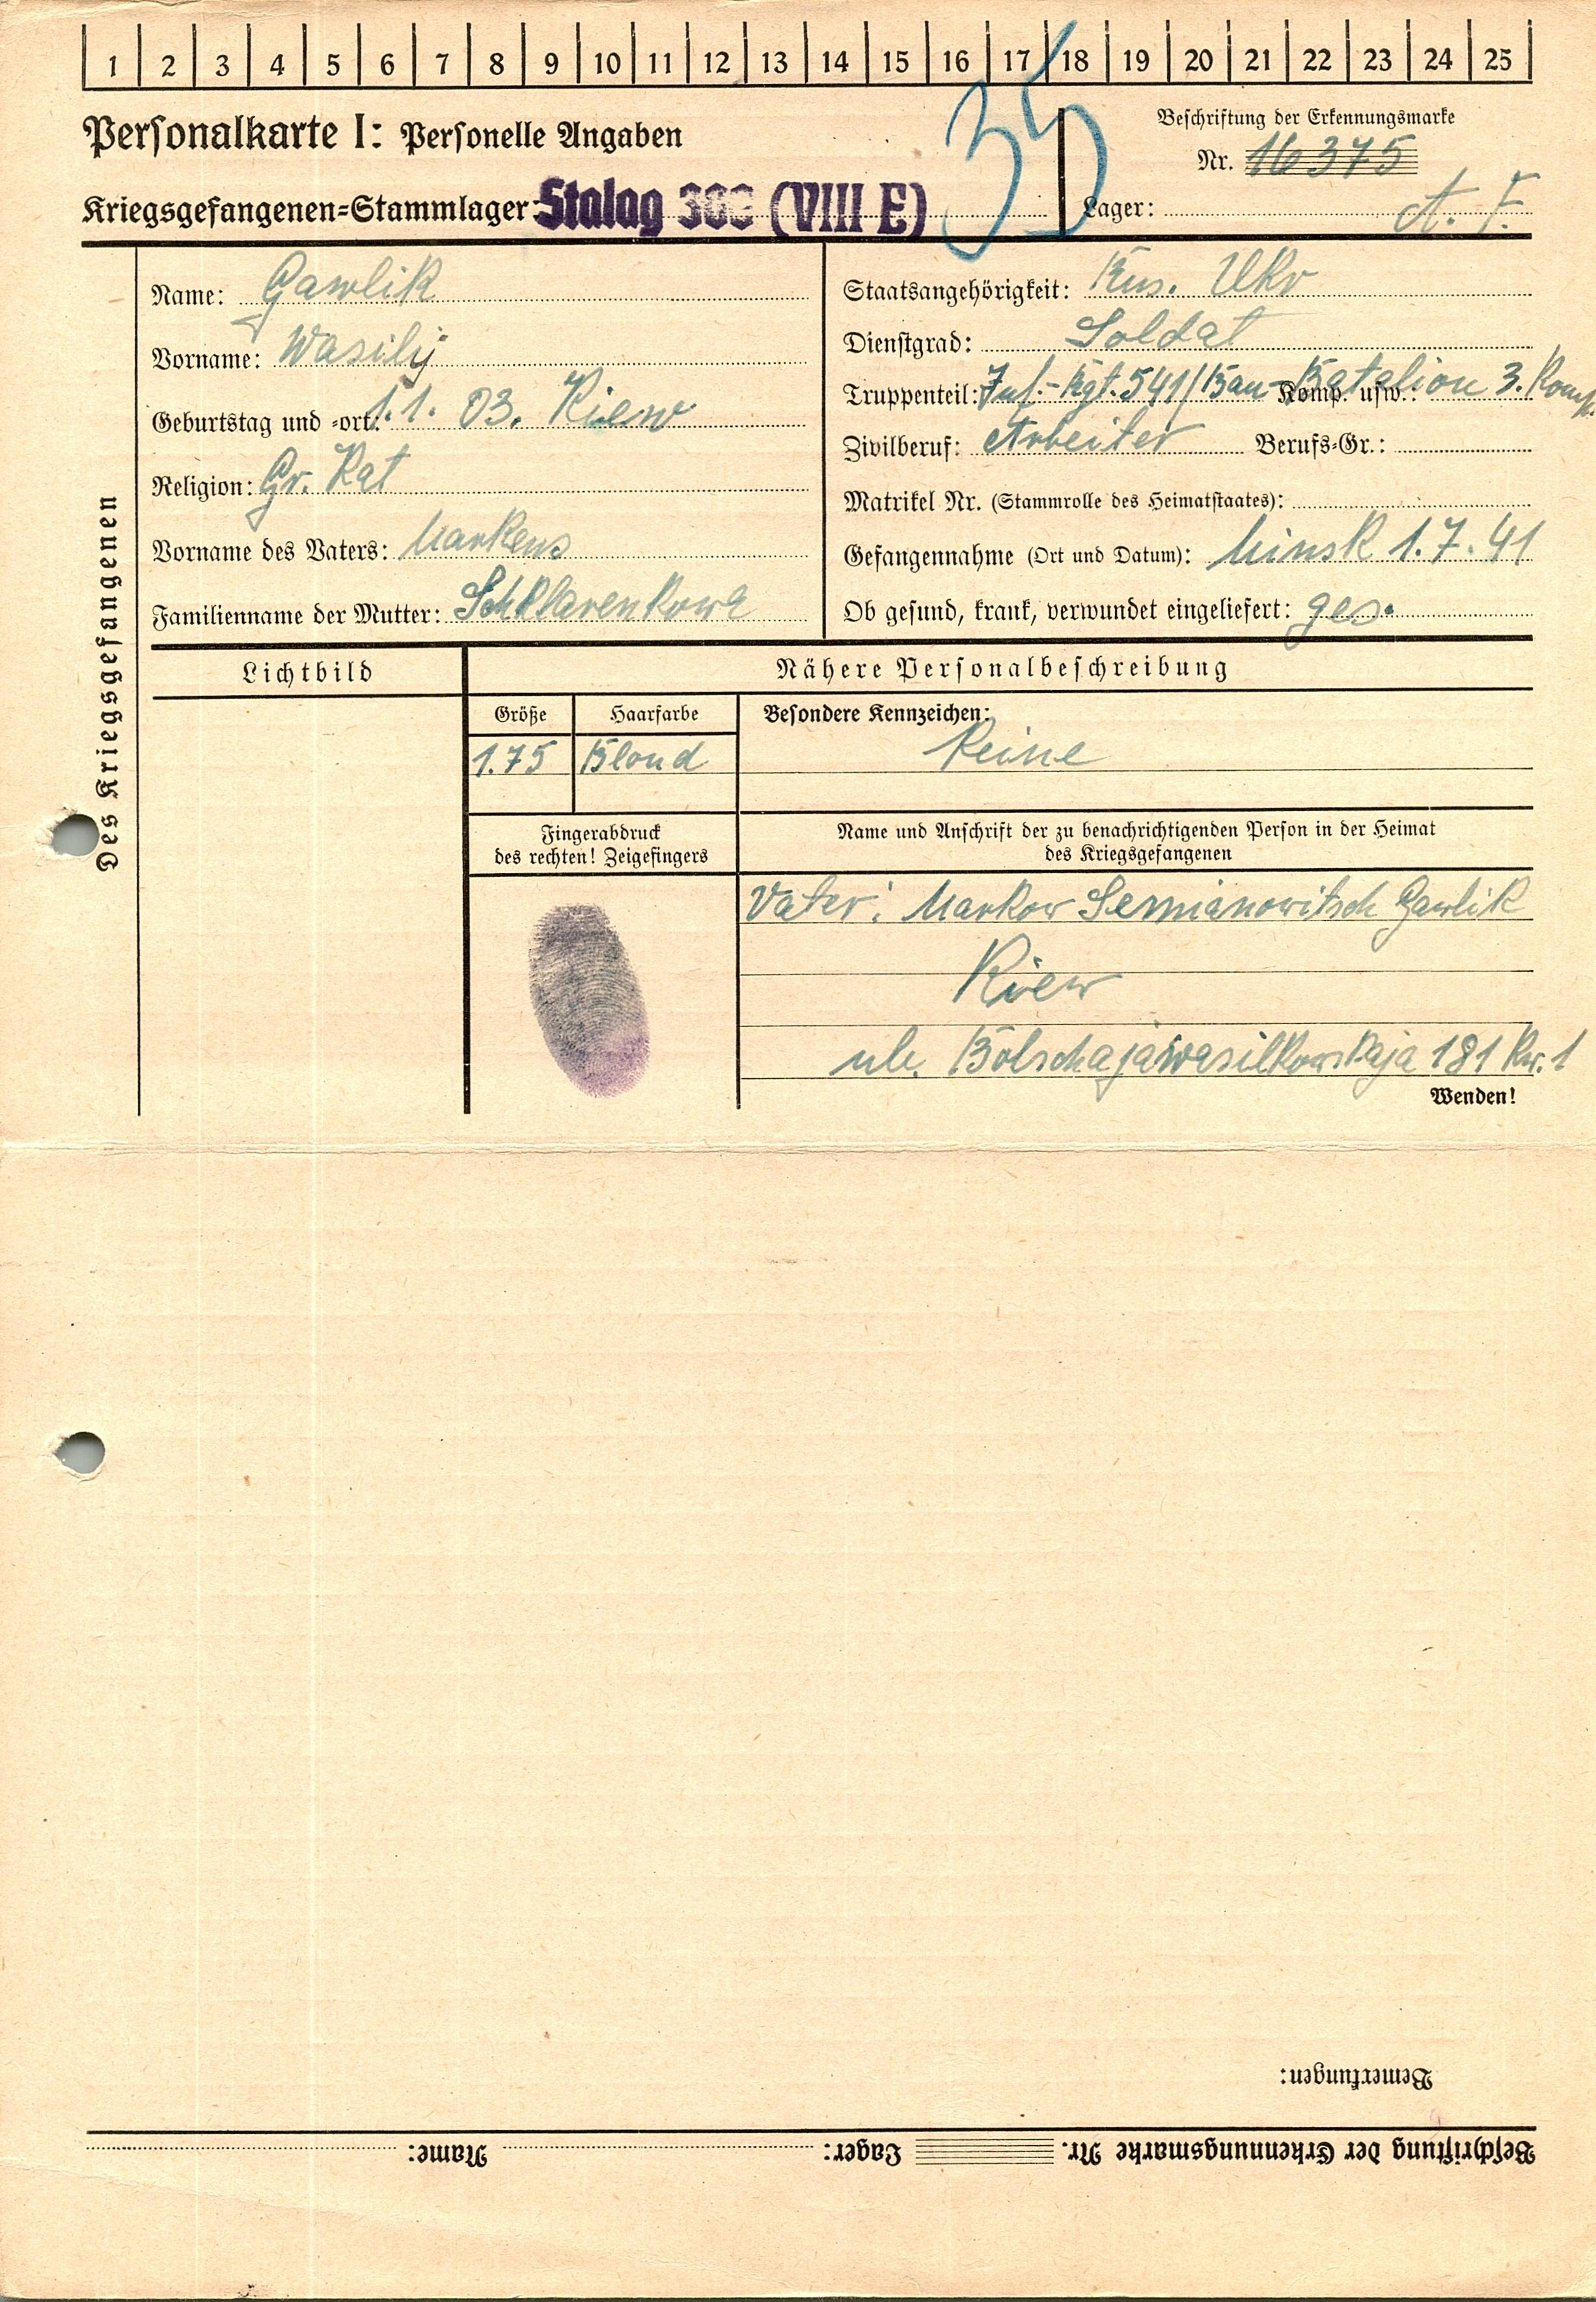 1 2 3 4 5 6 7 8 9 10 11 12 13 14 15 16 17 18 19 20 21 22 23 24 25
Personalkarte I: Personelle Angaben
35
Beschriftung der Erkennungsmarke
Nr. 16375
Kriegsgefangenen-Stammlager: Stalag 308 (VIII E)
Lager: A. F.
Des Kriegsgefangenen
Name: Gawlik
Vorname: Wasilij
Geburtstag und -ort: 1.1. 03. Kiew
Religion: Gr. Kat
Vorname des Vaters: Markens
Familienname der Mutter: Schklarenkowa
Staatsangehörigkeit: Rus. Ukr
Dienstgrad: Soldat
Truppenteil: Inf.-Rgt. 541/Bau-Batalion 3. Komp. Komp. usw.:
Zivilberuf: Arbeiter Berufs-Gr.:
Matrikel Nr. (Stammrolle des Heimatstaates):
Gefangennahme (Ort und Datum): Minsk 1.7.41
Ob gesund, krank, verwundet eingeliefert: ges.
Lichtbild
Nähere Personalbeschreibung
Größe
Haarfarbe
Besondere Kennzeichen:
1.75
Blond
Keine
Fingerabdruck
des rechten! Zeigefingers
Name und Anschrift der zu benachrichtigenden Person in der Heimat
des Kriegsgefangenen
Vater: Markow Semianowitsch Gawlik
Kiew
ul. Bolschajawasilkowskaja 181 Kw. 1
Wenden!
Bemerkungen:
Beschriftung der Erkennungsmarke Nr. Lager: Name: